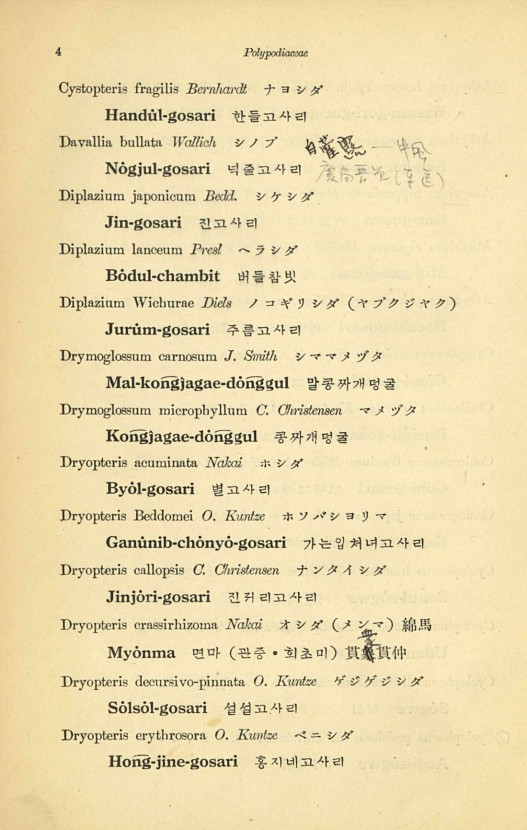 4
Polypodiaceae
Cystopteris fragilis Bernhardt ナヨシダ
Handůl-gosari 한들고사리
Davallia bullata Wallich シノブ
Nógjul-gosari 넉줄고사리
Diplazium japonicum Bedd. シケシダ
Jin-gosari 진고사리
Diplazium lanceum Presl ヘラシダ
Bódul-chambit 버들참빗
Diplazium Wichurae Diels ノコギリシダ (ヤブクジヤク)
Jurům-gosari 주름고사리
Drymoglossum carnosum J. Smith シママメヅタ
Mal-kongjagae-dónggul 말콩짜개덩굴
Drymoglossum microphyllum C. Christensen マメヅタ
Kongjagae-dónggul 콩짜개덩굴
Dryopteris acuminata Nakai ホシダ
Byól-gosari 별고사리
Dryopteris Beddomei O. Kuntze ホソバシヨリマ
Ganůnib-chónyó-gosari 가는잎처녀고사리
Dryopteris callopsis C. Christensen ナンタイシダ
Jinjóri-gosari 진저리고사리
Dryopteris crassirhizoma Nakai オシダ (メンマ) 綿馬
Myónma 면마 (관중・희초미) 貫仲
Dryopteris decursivo-pinnata O. Kuntze ゲジゲジシダ
Sólsól-gosari 설설고사리
Dryopteris erythrosora O. Kuntze ベニシダ
Hong-jine-gosari 홍지네고사리